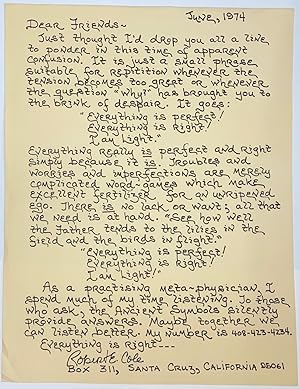 June, 1974
Dear Friends~
Just thought I'd drop you all a line
to ponder in this time of apparent
confusion. It is just a small phrase
suitable for repitition whenever the
tension becomes too great or whenever
the question "why" has brought you to
the brink of despair. It goes:
"Everything is perfect!
Everything is right!
I am Light."
Everything really is perfect and right
simply because it is! Troubles and
worries and imperfections are merely
complicated word-games which make
excellent fertilizer for an unripened
ego. There is no lack or want; all that
we need is at hand. "See how well
the Father tends to the lilies in the
field and the birds in flight."
"Everything is perfect!
Everything is right!
I am Light!"
As a practising meta-physician, I
spend much of my time listening. To those
who ask, the Ancient Symbols silently
provide answers. Maybe together we
can listen better. My number is 408-423-4234.
Everything is Right---
Robert E. Cole
Box 311, Santa Cruz, California 95061